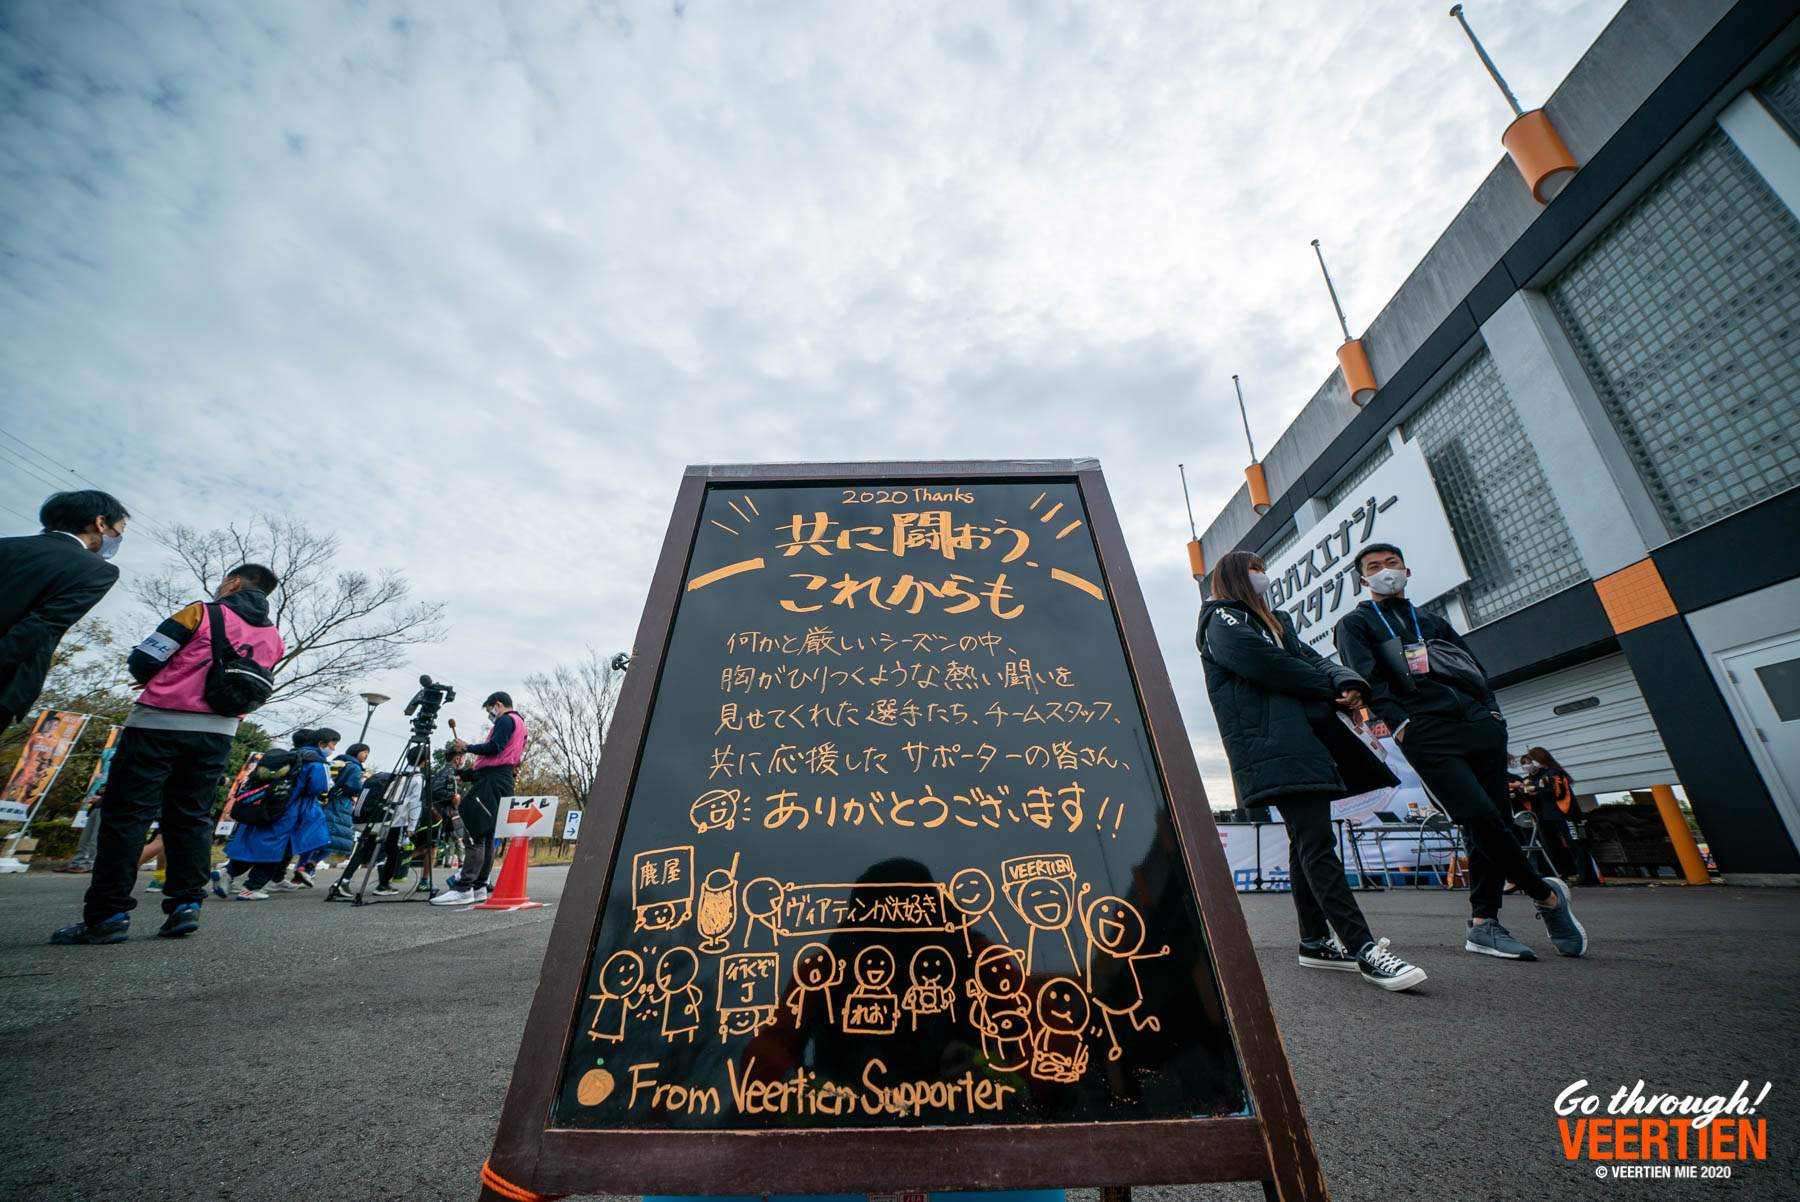 2020 Thanks
共に闘おう、
これからも
何かと厳しいシーズンの中、
胸がひりつくような熱い闘いを
見せてくれた選手たち、チームスタッフ、
共に応援したサポーターの皆さん、
ありがとうございます!!
鹿屋
ヴィアティンが大好き
VEERTIEN
行くぞ
J
れお
From Veertien Supporter
トイレ
P
テレビ
日ガスエナジー
スタジア
Go through!
VEERTIEN
© VEERTIEN MIE 2020